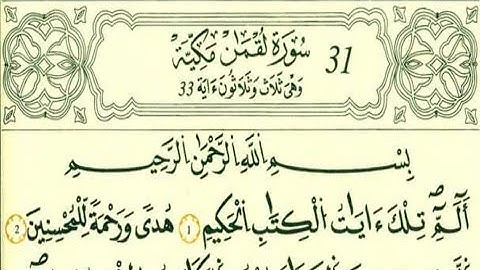 سُورَةُ لُقْمَٰنَ مَكِّيَّةٌ 31
وَهْىَ ثَلَاثٌ وَثَلَاثُونَ ءَايَةً 33
بِسْمِ اِ۬للَّهِ اِ۬لرَّحْمَٰنِ اِ۬لرَّحِيمِ
أَلَٓمِّٓ تِلْكَ ءَايَٰتُ اُ۬لْكِتَٰبِ اِ۬لْحَكِيمِ 1 هُدىً وَرَحْمَةً لِّلْمُحْسِنِينَ 2